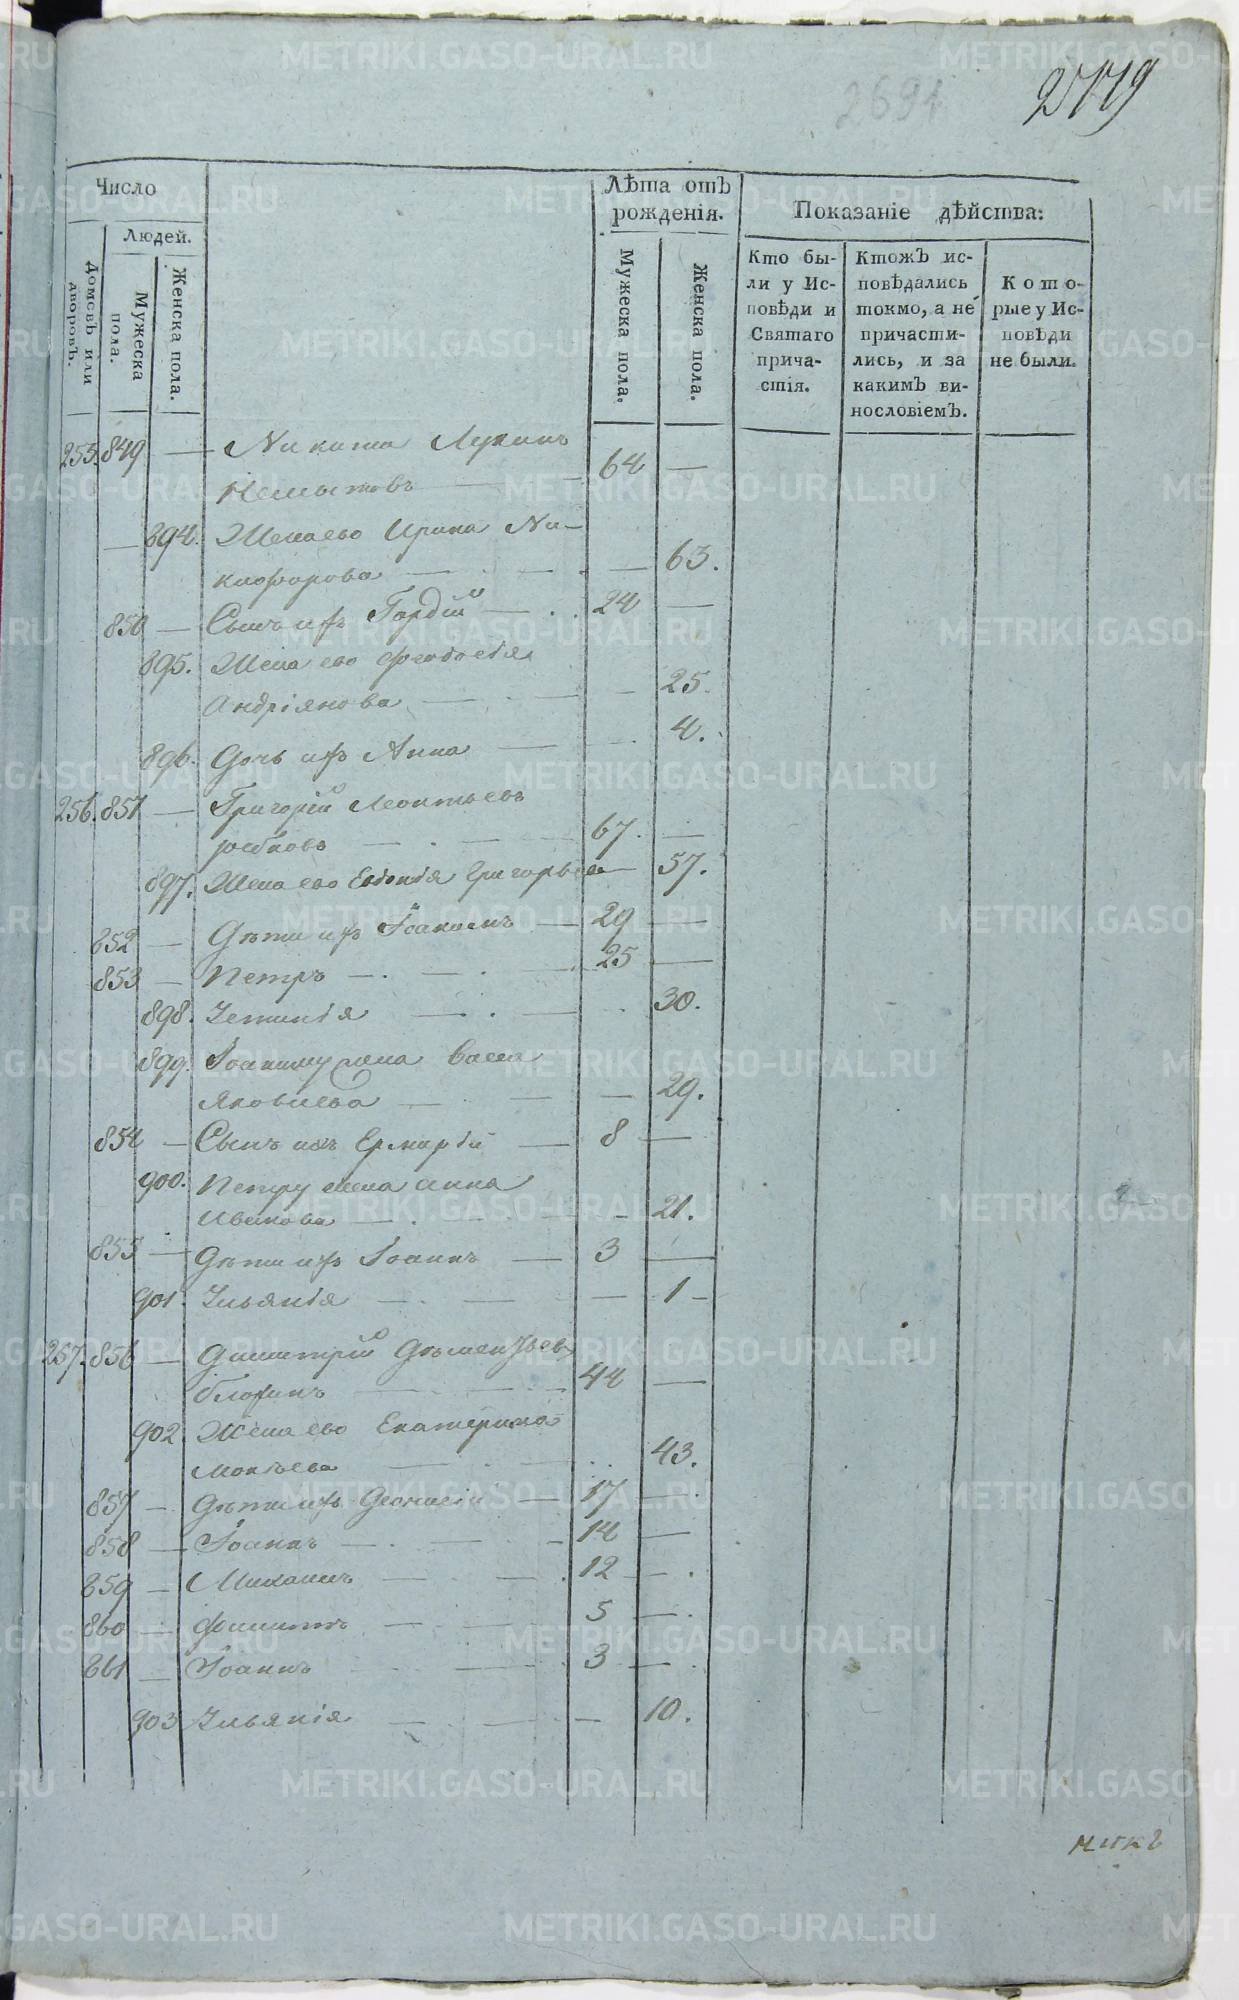 2691
2719
Число
Людей.
Домовъ или дворовъ.
Мужеска пола.
Женска пола.
Лѣта отъ рожденія.
Мужеска пола.
Женска пола.
Показаніе дѣйства:
Кто бы-
ли у Ис-
повѣди и
Святаго
прича-
стія.
Ктожъ ис-
повѣдались
токмо, а не
причасти-
лись, и за
какимъ ви-
нословіемъ.
Кото-
рые у Ис-
повѣди
не были.
255. 849 — Никита Лукинъ
64 —
— 894. Жена ево Ирина Ни-
кифорова — 63.
850 — Сынъ ихъ Гордій — 24 —
895. Жена ево Феодосія
Андріянова — 25.
896. Дочь ихъ Анна — 4.
256. 851 — Григорій Леонтьевъ
67. —
897. Жена ево Григорьева — 57.
852 — Дѣти ихъ Іоакимъ — 29 —
853 — Петръ — 25 —
898. — 30.
899. Іоакиму жена Васса
Яковлева — 29.
854 — Сынъ ихъ — 8 —
900. Петру жена Анна
Иванова — 21.
855 — Дѣти ихъ Іоаннъ — 3 —
901. Ульянія — 1 —
257. 856 — Димитрій
44 —
902 Жена ево Екатерина
Мокѣева — 43.
857 — Дѣти ихъ — 17 —
858 — Іоаннъ — 14 —
859 — Михаилъ — 12 —
860 — Филиппъ — 5 —
861 — Іоаннъ — 3 —
903 Ульянія — 10.
METRIKI.GASO-URAL.RU